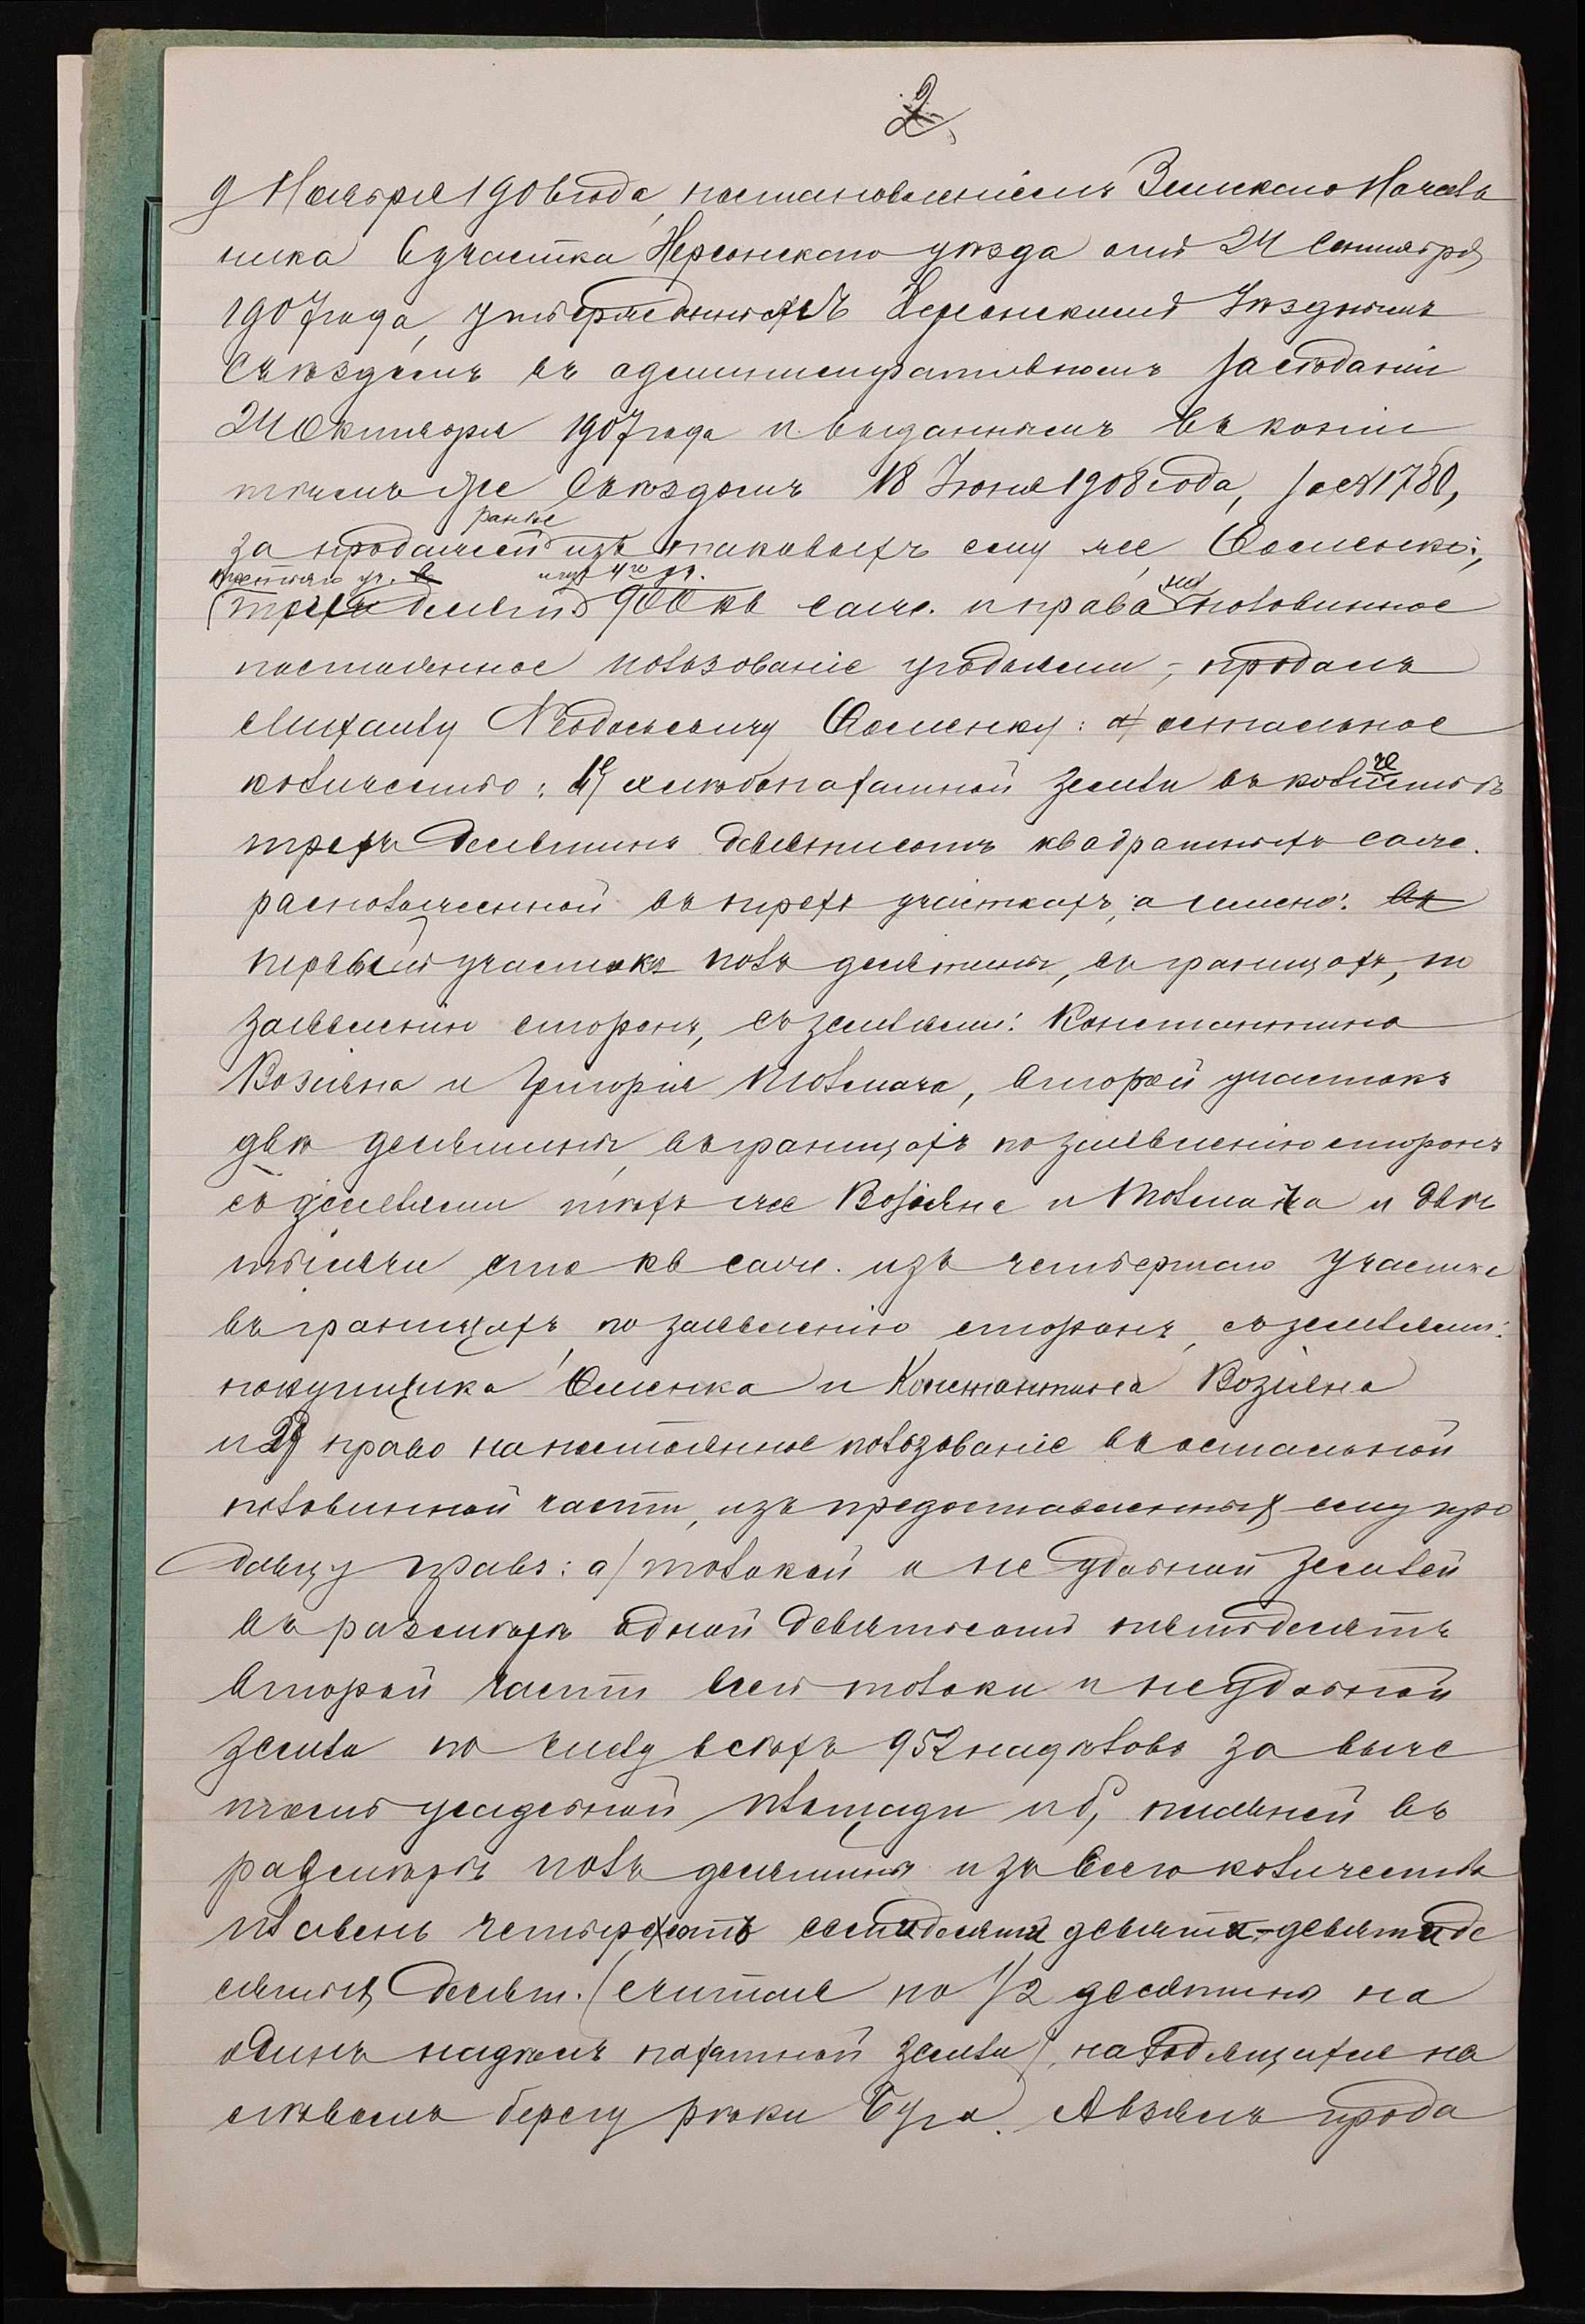 2
9 Ноября 1906 года, постановленіемъ Земскаго Началь
ника 6 участка Херсонскаго уѣзда отъ 24 Сентября
1907 года, утвержденныхъ Херсонскимъ Уѣзднымъ
Съѣздомъ въ административномъ засѣданіи
24 Октября 1907 года и выданнымъ въ копіи
тѣмъ же Съѣздомъ 18 Іюня 1908 года, за № 1780,
ранѣе
за продажей изъ таковыхъ ему же, Осменко:,
третьяго уч. изъ 4го уч.
(трехъ десят. 900 кв саж. и права на половинное
постоянное пользованіе угодьями, - продалъ
Михаилу Осменку: остальное
количество: 1/ хлѣбопахатной земли въ количествѣ
трехъ десятинъ девятисотъ квадратныхъ саж.
расположенной въ трехъ участкахъ, а именно: въ
первый участокъ полъ десятины, въ границахъ, по
заявленію сторонъ, съ землями: Константина
Возіяна и Григорія Толмача, второй участокъ
двѣ десятины, въ границахъ по заявленію сторонъ
съ землями тѣхъ же Возіяна и Толмача и двѣ
тысячи сто кв саж. изъ четвертаго участка
въ границахъ, по заявленію сторонъ, съ землями:
покупщика Осменка и Константина Возіяна
и 2/ право на постоянное пользованіе въ остальной
половинной части, изъ предоставленныхъ ему про
давцу правъ: а/ толокой и неудобной землей
въ размѣрѣ одной девятьсотъ пятьдесятъ
второй части всей толоки и неудобной
земли по числу всѣхъ 952 надѣловъ за выче
томъ усадебной площади и б/ плавней въ
размѣрѣ полъ десятины изъ всего количества
плавень четырехсотъ семидесяти девяти-девятиде
сятыхъ десят. (считая по 1/2 десятины на
одинъ надѣлъ пахатной земли), находящихся на
лѣвомъ берегу рѣки Буга. А взялъ прода